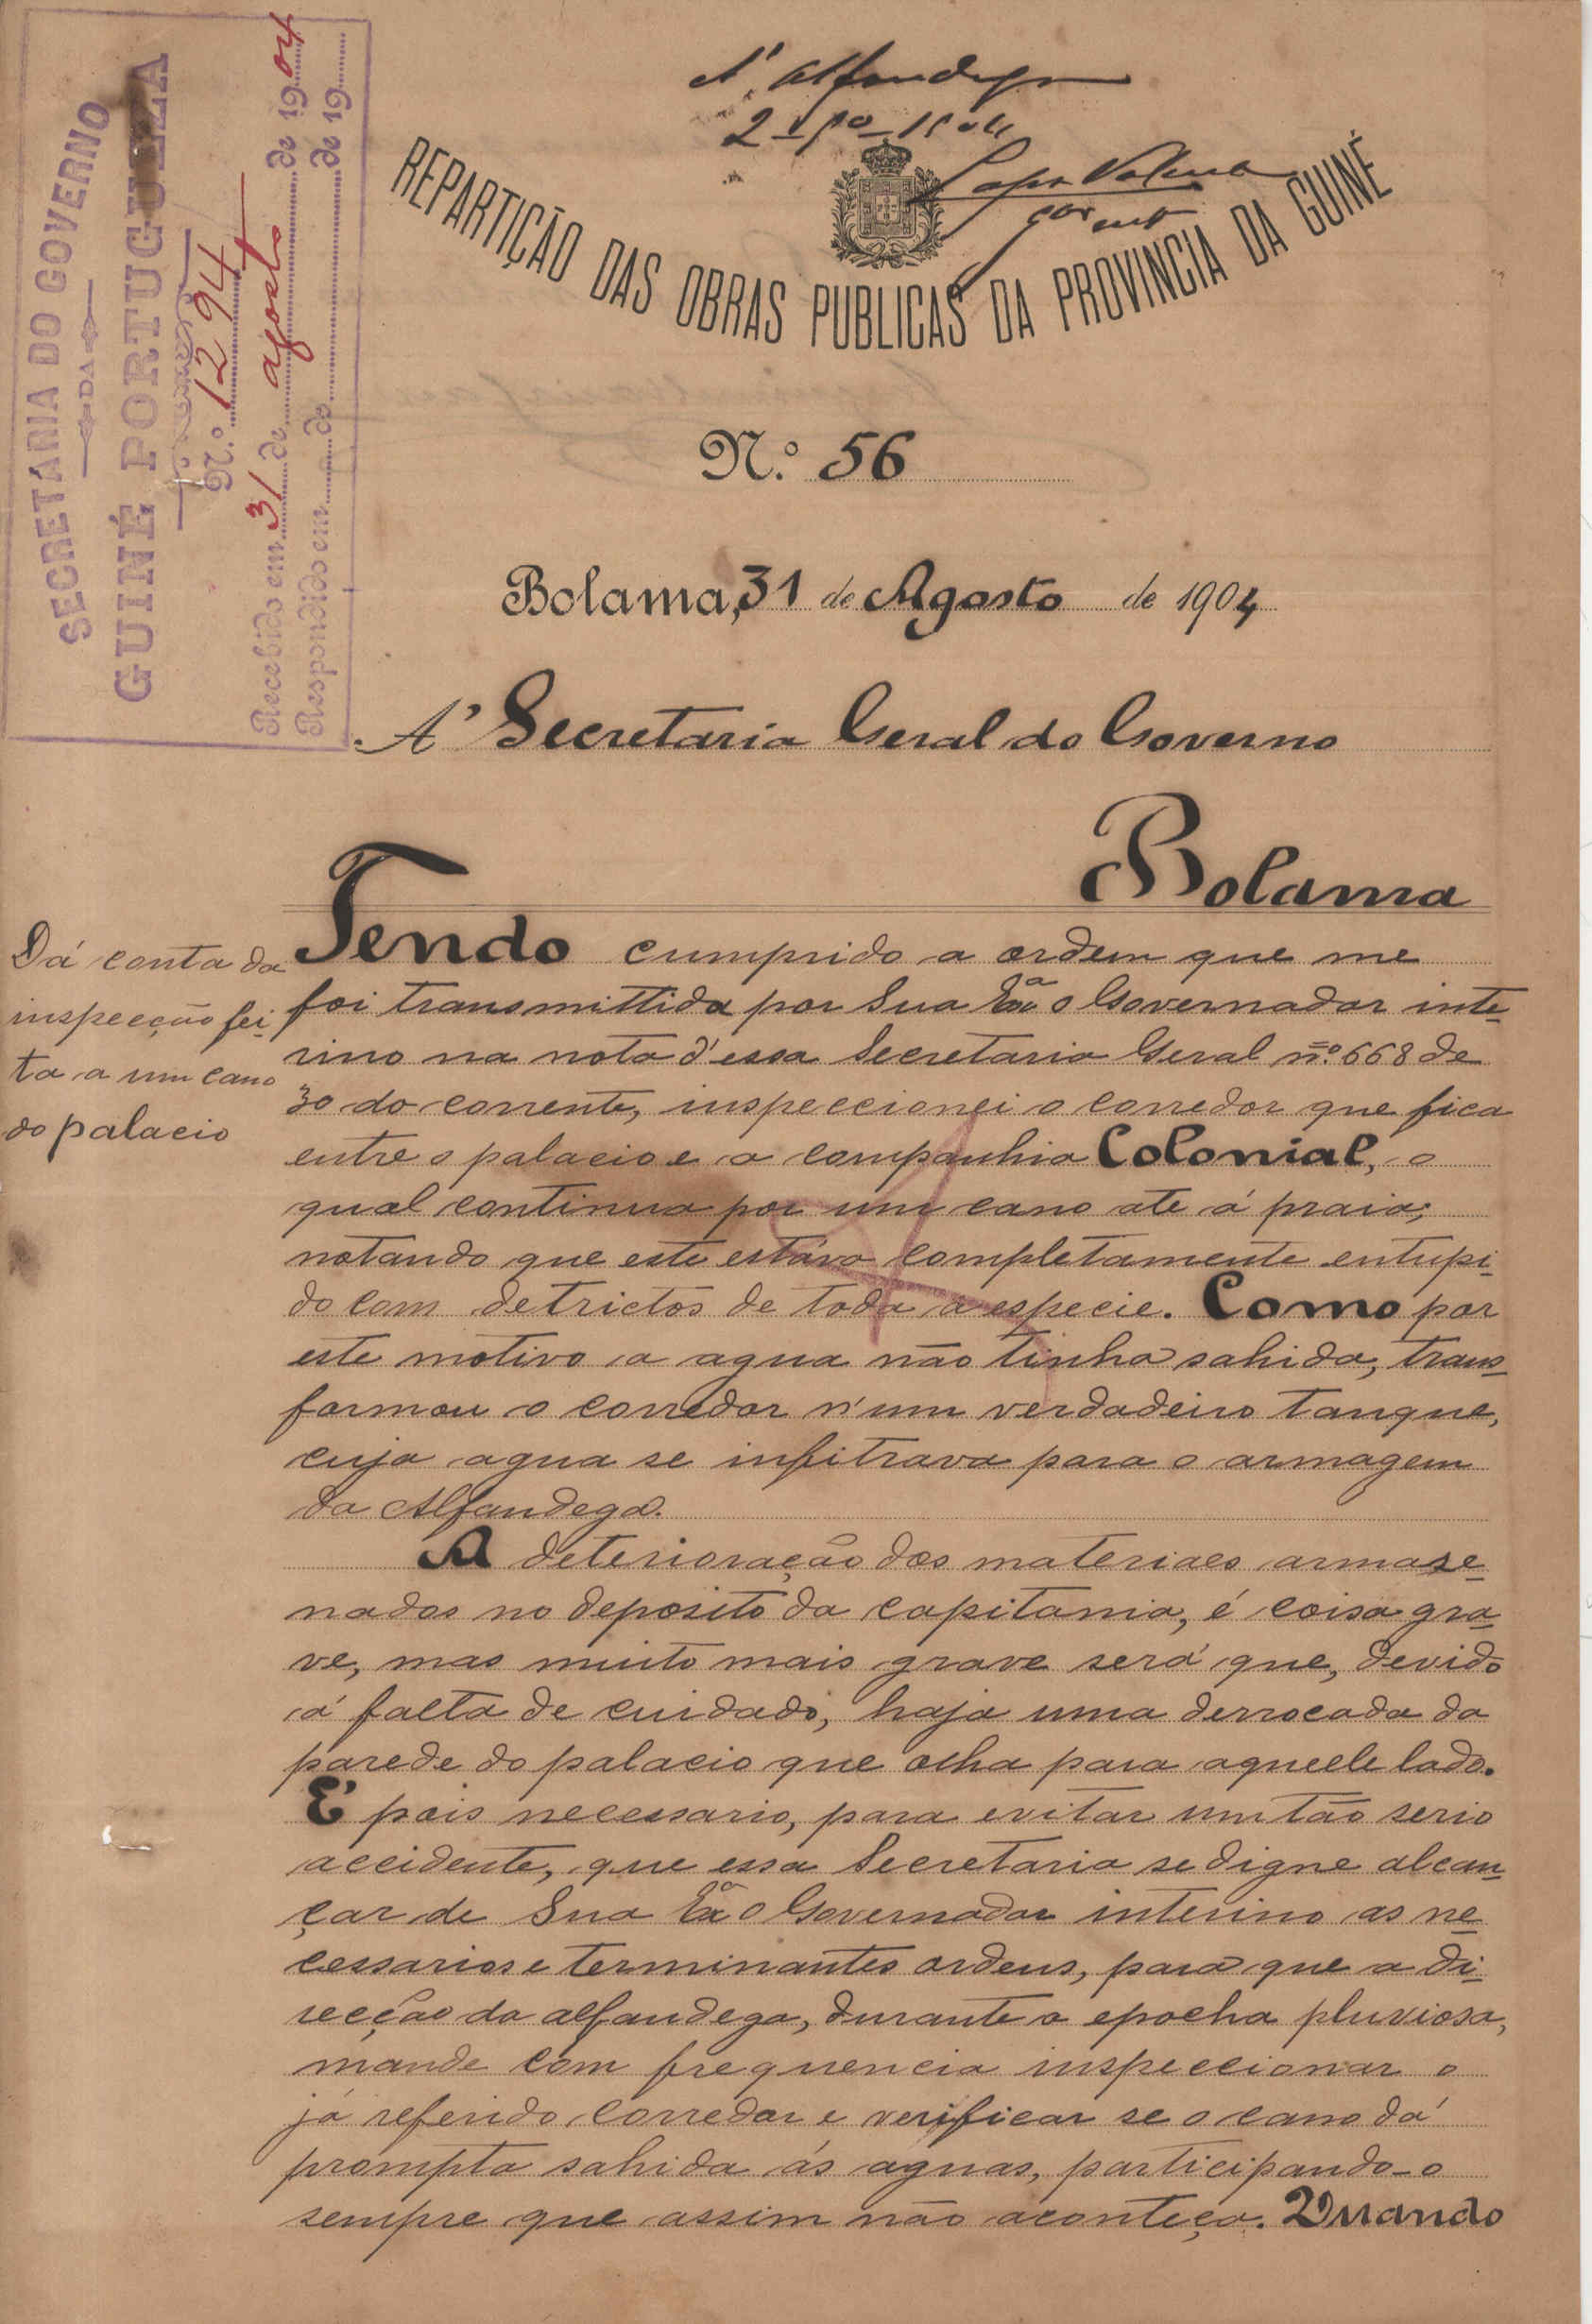 SECRETARIA DO GOVERNO
DA
GUINÉ PORTUGUEZA
N.º 1294
Recebido em 31 de agosto de 1904
Respondido em de de 19
A' Alfandega
REPARTIÇÃO DAS OBRAS PUBLICAS DA PROVINCIA DA GUINÉ
N.º 56
Bolama, 31 de Agosto de 1904
A' Secretaria Geral do Governo
Bolama
Dá conta da
inspecção fei-
ta a um cano
do palacio
Tendo cumprido a ordem que me
foi transmittida por Sua Exª o Governador inte-
rino na nota d'essa Secretaria Geral nº 668 de
30 do corrente, inspeccionei o corredor que fica
entre o palacio e a companhia Colonial, o
qual continua por um cano ate á praia;
notando que este estáva completamente entupi-
do com detrictos de toda a especie. Como por
este motivo a agua não tinha sahida, trans-
formou o corredor n'um verdadeiro tanque,
cuja agua se infitrava para o armagem
da Alfandega.
A deterioração dos materiaes armase-
nados no deposito da capitania, é coisa gra-
ve, mas muito mais grave será que, devido
á falta de cuidado, haja uma derrocada da
parede do palacio que olha para aquelle lado.
E' pois necessario, para evitar um tão serio
accidente, que essa Secretaria se digne alcan-
çar de Sua Exª o Governador interino as ne-
cessarias e terminantes ordens, para que a di-
recção da alfandega, durante a epocha pluviosa,
mande com frequencia inspeccionar o
já referido corredor e verificar se o cano dá
prompta sahida ás aguas, participando-o
sempre que assim não aconteça. Quando